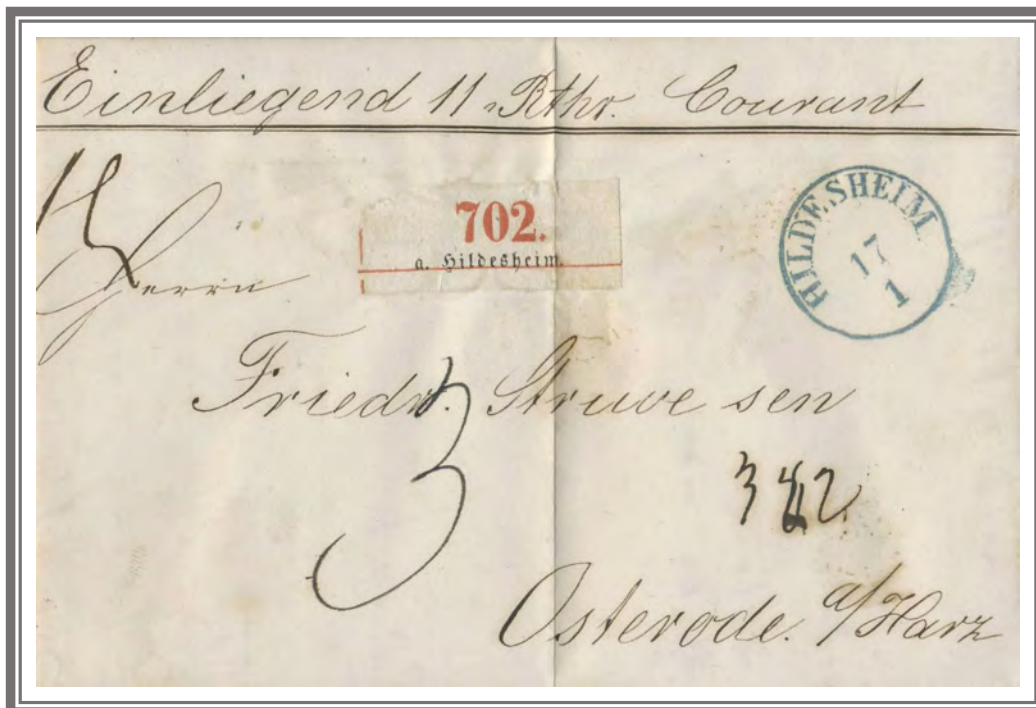 Einliegend 11 Rthr. Courant
702.
a. Hildesheim.
HILDESHEIM
17
1
Herrn
Friedr. Struve sen
3
Osterode. a/Harz